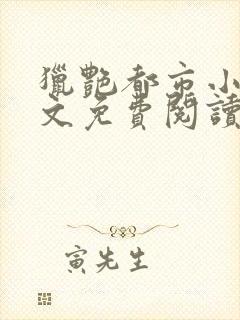 獵艷都市小
文免費閱讀
寅先生